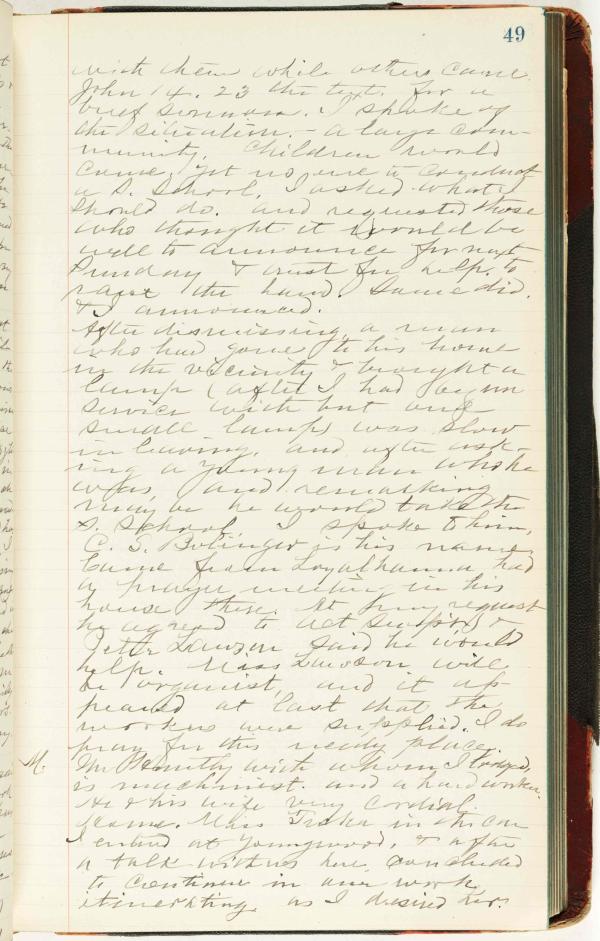 49
with them while others came.
John 14. 23 the text. for a
brief sermon. I spoke of
the situation. - a large com-
munity, Children would
come, yet no one to conduct
a S. School, I asked what I
should do. and requested those
who thought it would be
well to announce for next
Sunday & trust for help. to
raise the hand. Some did.
& I announced.
After dismissing a man
who had gone to his home
in the vicinity & brought a
lamp (after I had begun
service with but one
small lamp) was slow
in leaving, and after ask-
ing a young man who he
was, and remarking
may be he would take the
S. School I spoke to him,
C. S. Bolinger is his name,
Came from Loyalhanna had
a prayer meeting in his
house there. At my request
he agreed to act &
Lawson said he would
help. Miss Lawson will
be organist, and it ap-
peared at last that the
workers were supplied. I do
pray for this needy place.
M. Mr Smith with whom I lodged,
is machinist. and a hard worker.
He & his wife very cordial.
Home. Miss in the car
I entered at Youngwood, & after
a talk with us here concluded
to continue in our work,
itinerating as I desired her.